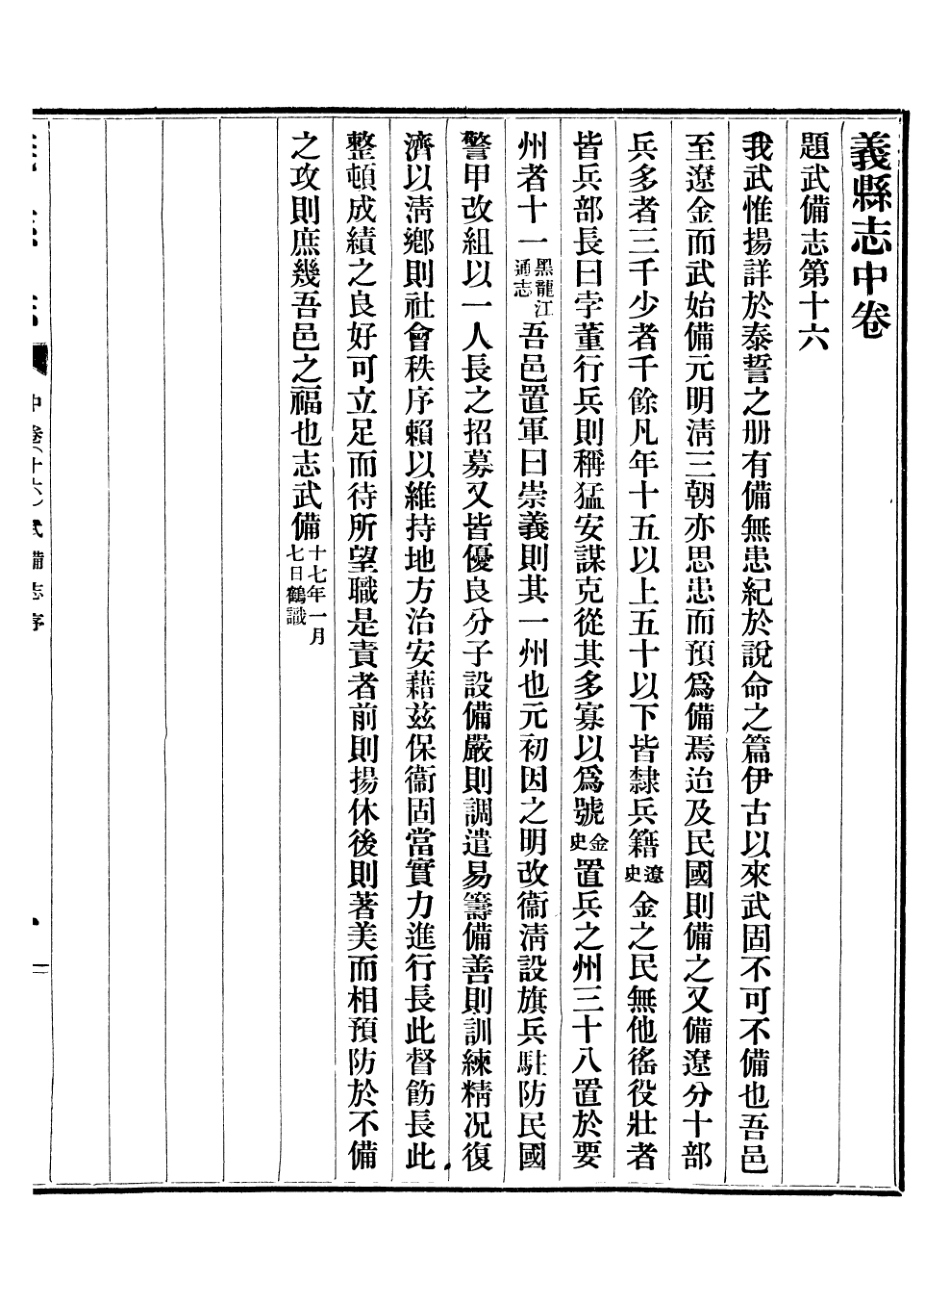 義縣志中卷
題武備志第十六
我武惟揚詳於泰誓之册有備無患紀於說命之篇伊古以來武固不可不備也吾邑
至遼金而武始備元明淸三朝亦思患而預爲備焉迨及民國則備之又備遼分十部
兵多者三千少者千餘凡年十五以上五十以下皆隸兵籍遼史金之民無他徭役壯者
皆兵部長曰孛菫行兵則稱猛安謀克從其多寡以爲號金史置兵之州三十八置於要
州者十一黑龍江通志吾邑置軍曰崇義則其一州也元初因之明改衞淸設旗兵駐防民國
警甲改組以一人長之招募又皆優良分子設備嚴則調遣易籌備善則訓練精况復
濟以淸鄉則社會秩序賴以維持地方治安藉玆保衞固當實力進行長此督飭長此
整頓成績之良好可立足而待所望職是責者前則揚休後則著美而相預防於不備
之攻則庶幾吾邑之福也志武備十七年一月七日鶴識
中卷(十六)武備志序
一